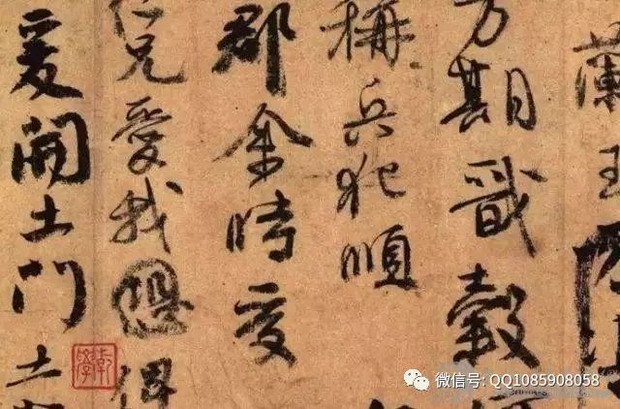 蘭玉
方期戩穀
稱兵犯順
郡余時受
仁兄愛我俾
爰開土門土
微信号: QQ1085908058